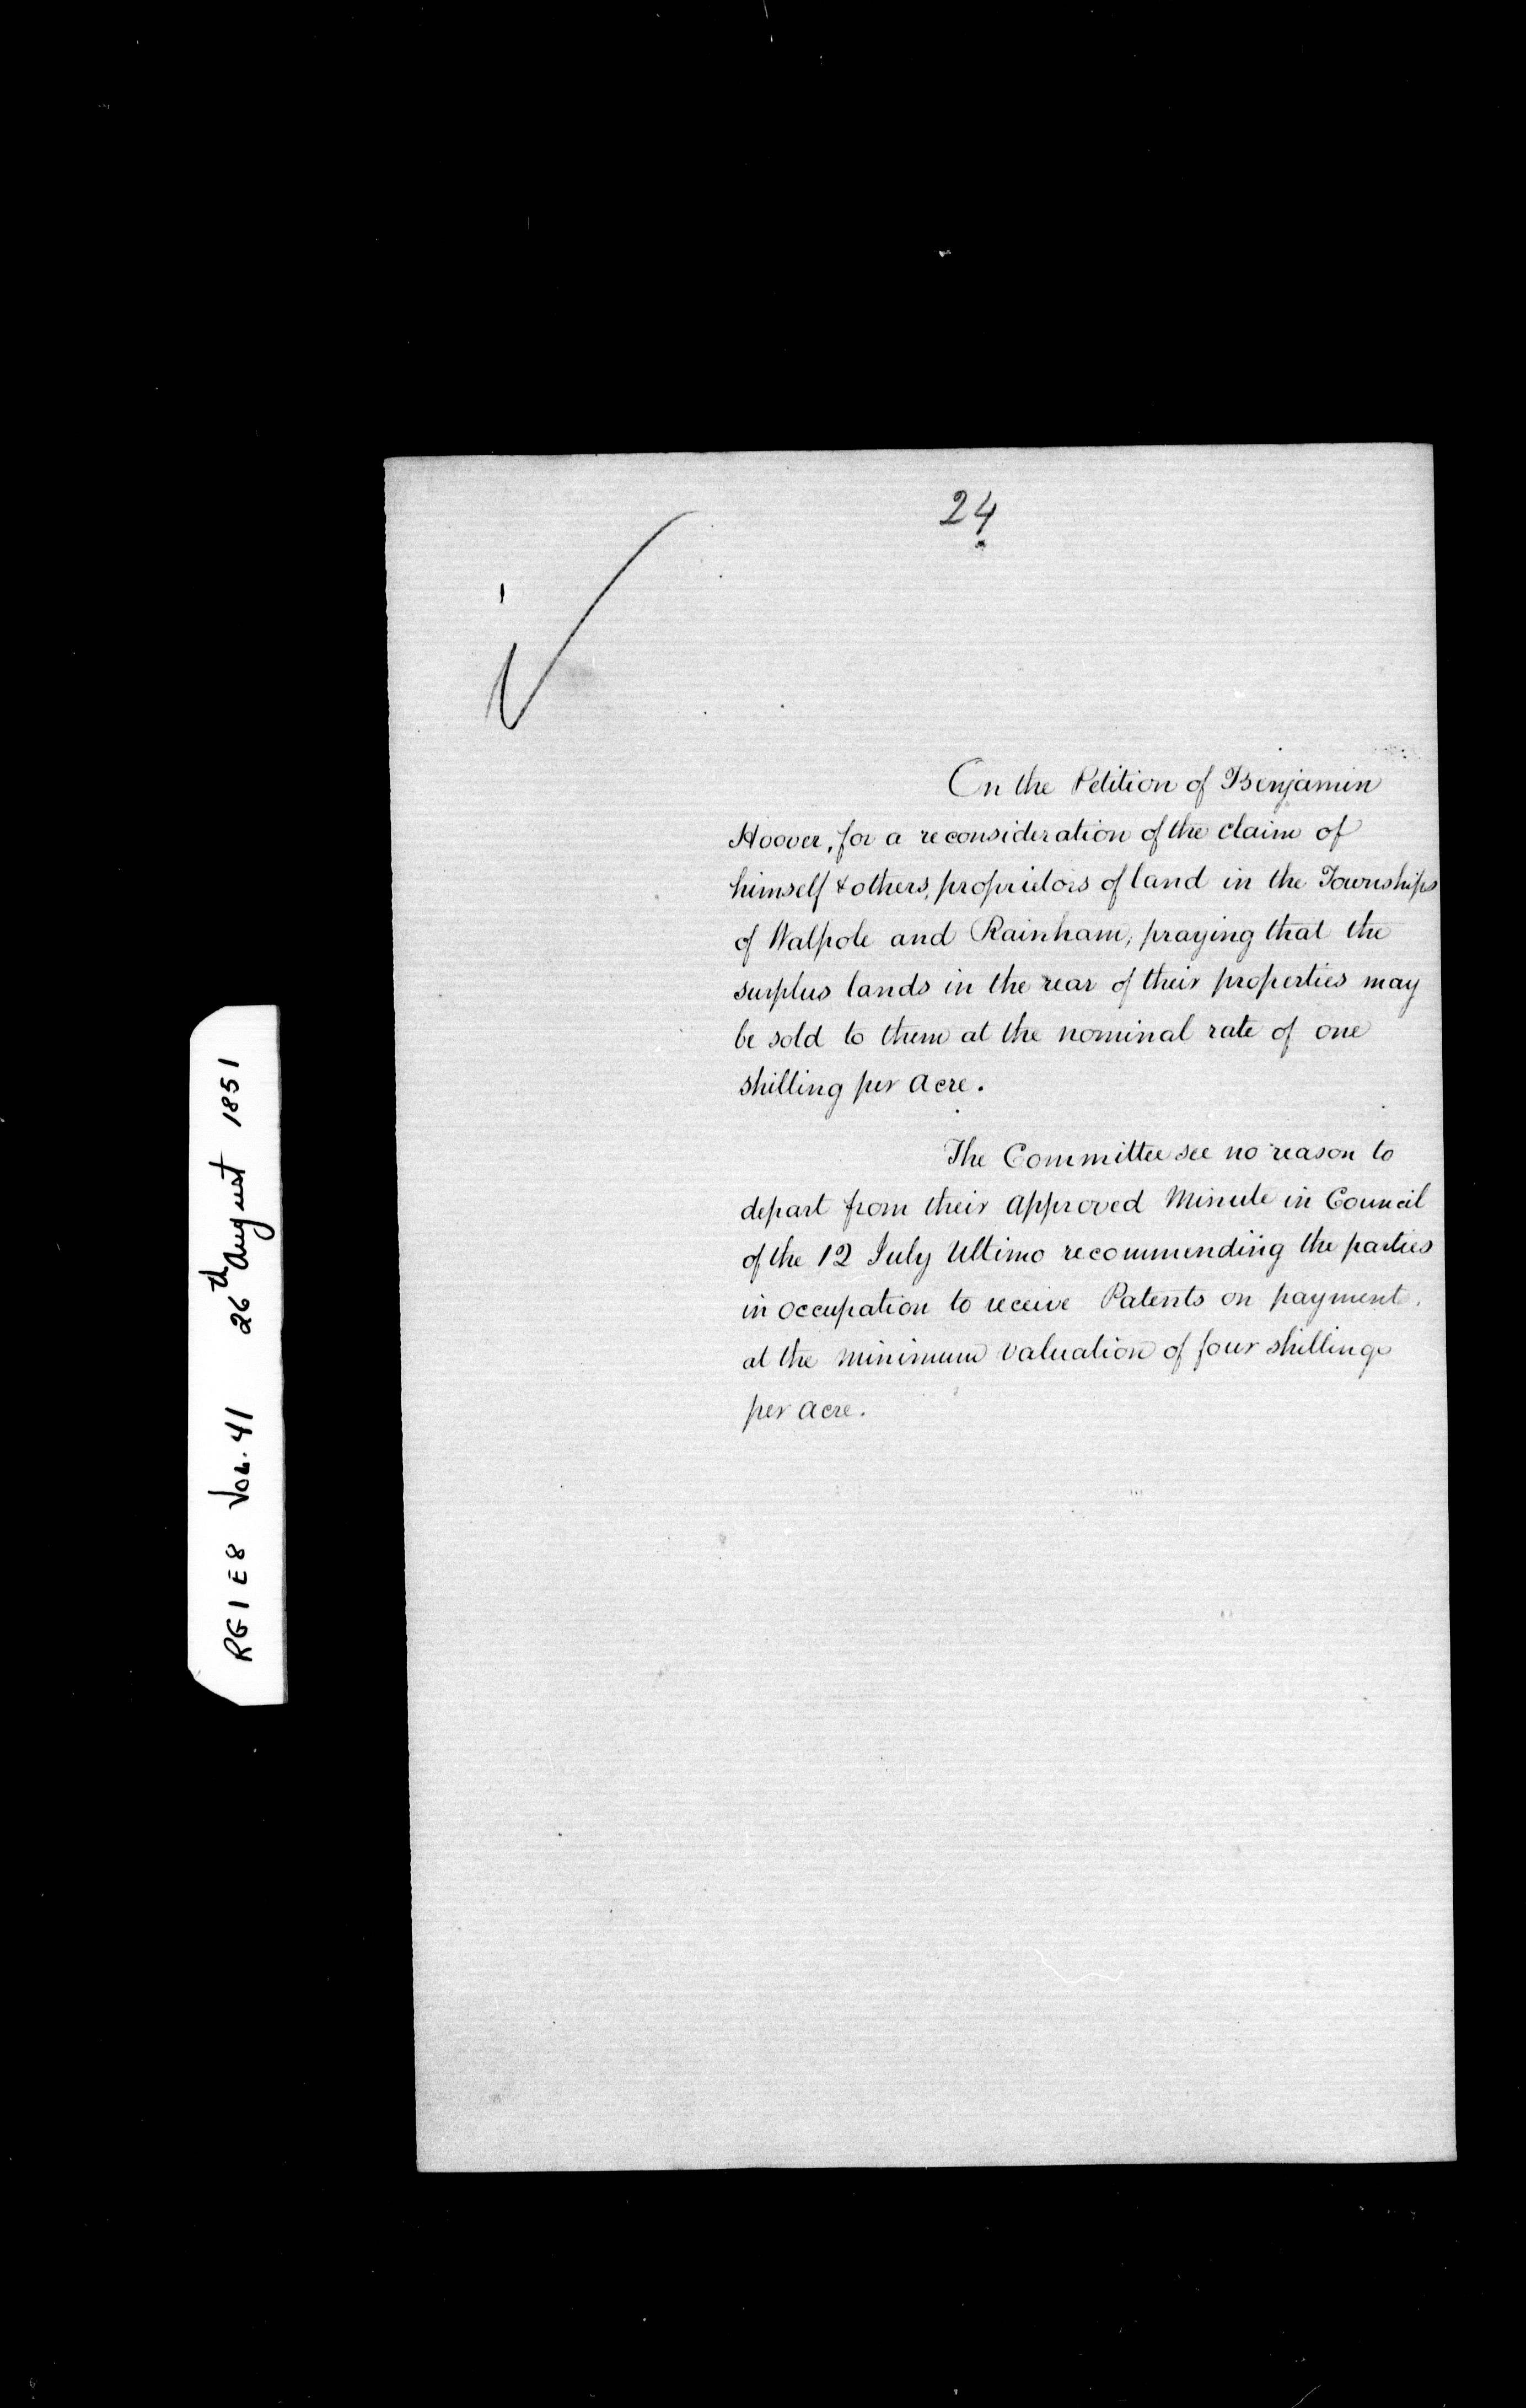 24
On the Petition of Benjamin
Hoover, for a reconsideration of the claim of
himself & others, proprietors of land in the Townships
of Walpole and Rainham, praying that the
surplus lands in the rear of their properties may
be sold to them at the nominal rate of one
shilling per acre.
The Committee see no reason to
depart from their approved Minute in Council
of the 12 July Ultimo recommending the parties
in occupation to receive Patents on payment
at the minimum valuation of four shillings
per acre.
RG1 E8 Vol. 41 26th August 1851